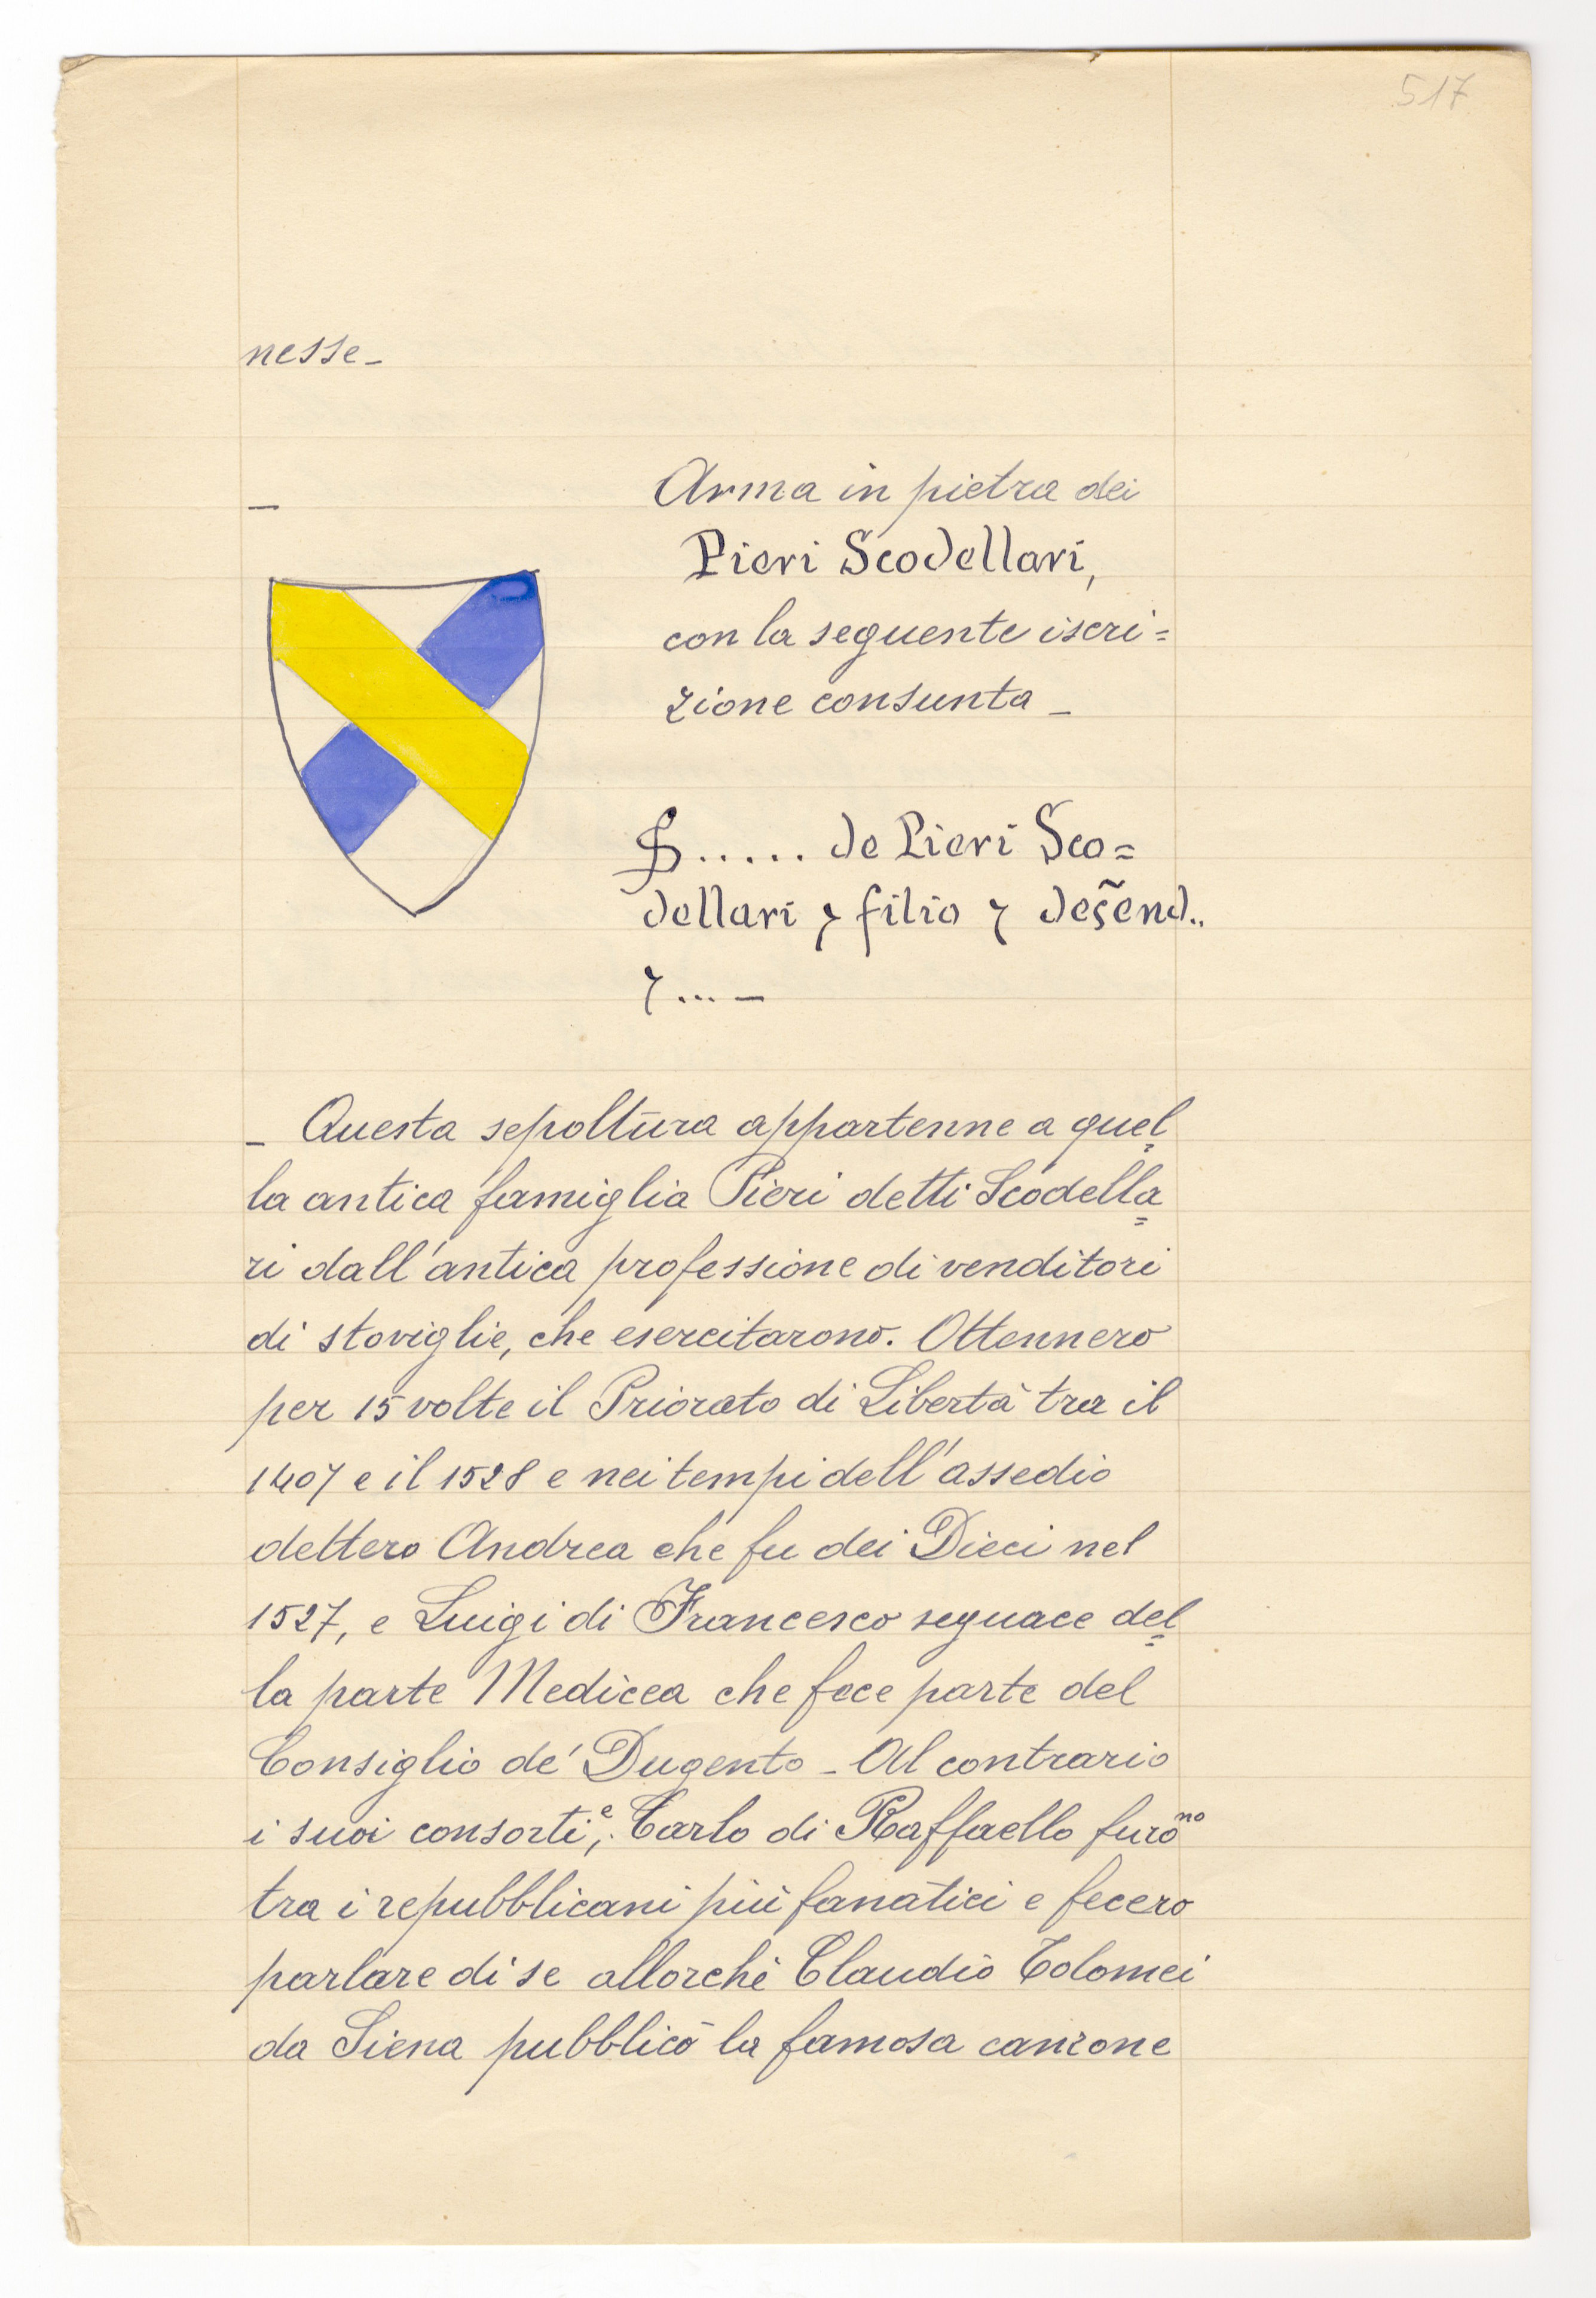 517
nesse_
_
Arma in pietra dei
Pieri Scodellari,
con la seguente iscri=
zione consunta_
S..... de Pieri Sco=
dellari ⁊ filio ⁊ des̃end..
⁊...—
_ Questa sepoltura appartenne a quel
la antica famiglia Pieri detti Scodella
ri dall'antica professione di venditori
di stoviglie, che esercitarono. Ottennero
per 15 volte il Priorato di Libertà tra il
1407 e il 1528 e nei tempi dell'assedio
dettero Andrea che fu dei Dieci nel
1527, e Luigi di Francesco seguace del
la parte Medicea che fece parte del
Consiglio de' Dugento _ Al contrario
i suoi consorti, e Carlo di Raffaello furono
tra i repubblicani più fanatici e fecero
parlare di se allorchè Claudio Tolomei
da Siena pubblicò la famosa canzone